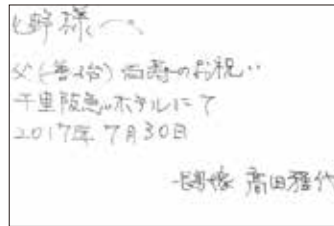 様へ
父(善治) 傘寿のお祝い
千里阪急ホテルにて
2017年 7月30日
高田雅代